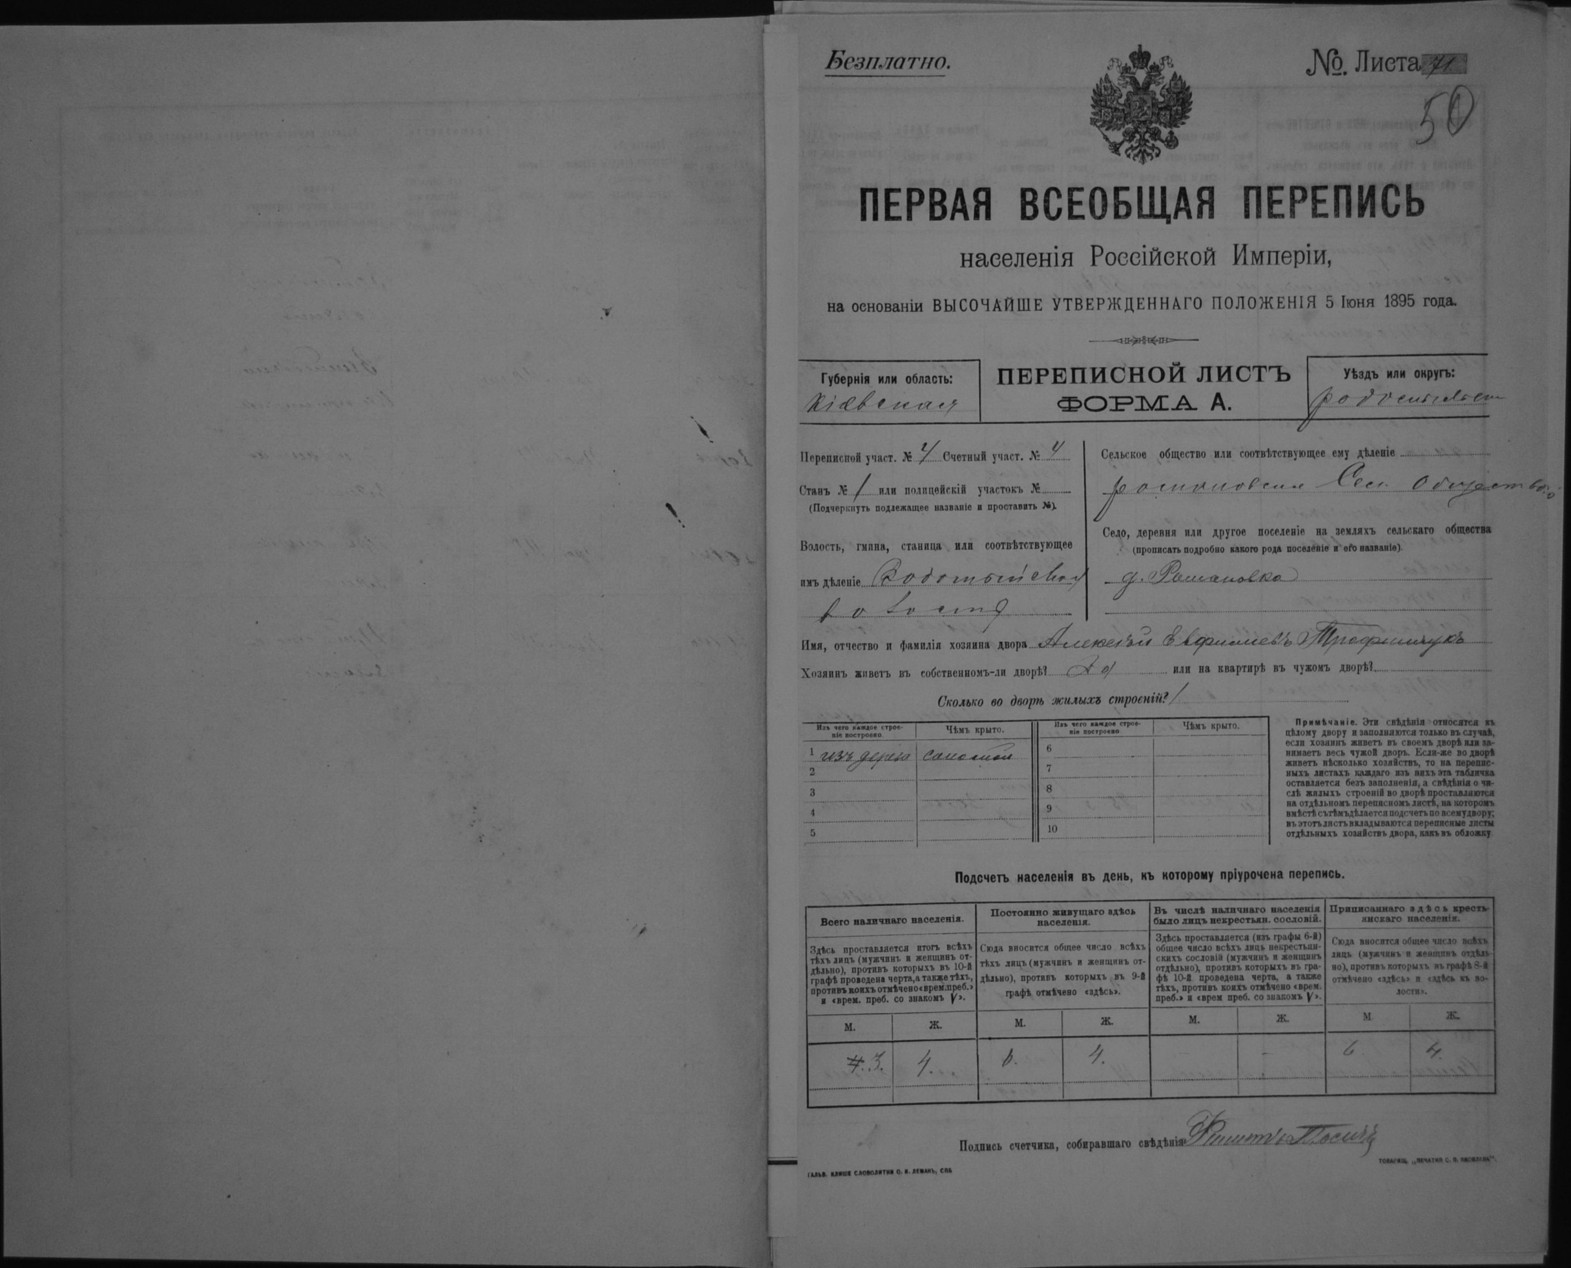 Безплатно.
№. Листа 71
50
ПЕРВАЯ ВСЕОБЩАЯ ПЕРЕПИСЬ
населенія Россійской Имперіи,
на основаніи ВЫСОЧАЙШЕ УТВЕРЖДЕННАГО ПОЛОЖЕНІЯ 5 Іюня 1895 года.
Губернія или область:
Кіевская
ПЕРЕПИСНОЙ ЛИСТЪ
ФОРМА А.
Уѣздъ или округъ:
Переписной участ. № 4 Счетный участ. № 4
Станъ № 1 или полицейскій участокъ №
(Подчеркнуть подлежащее названіе и проставить №).
Волость, гмина, станица или соотвѣтствующее
имъ дѣленіе
волость
Сельское общество или соотвѣтствующее ему дѣленіе
Сел. Общество
Село, деревня или другое поселеніе на земляхъ сельскаго общества
(прописать подробно какого рода поселеніе и его названіе)
д. Романовка
Имя, отчество и фамилія хозяина двора Алексѣй Евфимiевъ Трофимчукъ
Хозяинъ живетъ въ собственномъ-ли дворѣ? Да или на квартирѣ въ чужомъ дворѣ?
Сколько во дворѣ жилыхъ строеній? 1
Изъ чего каждое строе-
ніе построено.
Чѣмъ крыто.
Изъ чего каждое строе-
ніе построено
Чѣмъ крыто.
1 изъ дерева соломой
2
3
4
5
6
7
8
9
10
Примѣчаніе. Эти свѣдѣнія относятся къ
цѣлому двору и заполняются только въ случаѣ,
если хозяинъ живетъ въ своемъ дворѣ или за-
нимаетъ весь чужой дворъ. Если-же во дворѣ
живетъ нѣсколько хозяйствъ, то на перепис-
ныхъ листахъ каждаго изъ нихъ эта табличка
оставляется безъ заполненія, а свѣдѣнія о чи-
слѣ жилыхъ строеній во дворѣ проставляются
на отдѣльномъ переписномъ листѣ, на которомъ
вмѣстѣ съ тѣмъ дѣлается подсчетъ по всему двору;
въ этотъ листъ вкладываются переписные листы
отдѣльныхъ хозяйствъ двора, какъ въ обложку
Подсчетъ населенія въ день, къ которому пріурочена перепись.
Всего наличнаго населенія.
Здѣсь проставляется итогъ всѣхъ
тѣхъ лицъ (мужчинъ и женщинъ от-
дѣльно), противъ которыхъ въ 10-й
графѣ проведена черта, а также тѣхъ,
противъ коихъ отмѣчено «врем. преб.»
и «врем. преб. со знакомъ V».
Постоянно живущаго здѣсь
населенія.
Сюда вносится общее число всѣхъ
тѣхъ лицъ (мужчинъ и женщинъ от-
дѣльно), противъ которыхъ въ 9-й
графѣ отмѣчено «здѣсь».
Въ числѣ наличнаго населенія
было лицъ некрестьян. сословій.
Здѣсь проставляется (изъ графы 6-й)
общее число всѣхъ лицъ некрестьян-
скихъ сословій (мужчинъ и женщинъ
отдѣльно), противъ которыхъ въ гра-
фѣ 10-й проведена черта, а также
тѣхъ, противъ коихъ отмѣчено «врем.
преб.» и «врем преб. со знакомъ V».
Приписаннаго здѣсь кресть-
янскаго населенія.
Сюда вносится общее число всѣхъ
лицъ (мужчинъ и женщинъ отдѣль-
но), противъ которыхъ въ графѣ 8-й
отмѣчено «здѣсь» и «здѣсь въ во-
лости».
М. Ж. М. Ж. М. Ж. М. Ж.
3. 4. 6. 4. - 6 4.
Подпись счетчика, собиравшаго свѣдѣнія
ГАЛЬВ. КЛИШЕ СЛОВОЛИТНИ О. И. ЛЕМАНЪ, СПБ